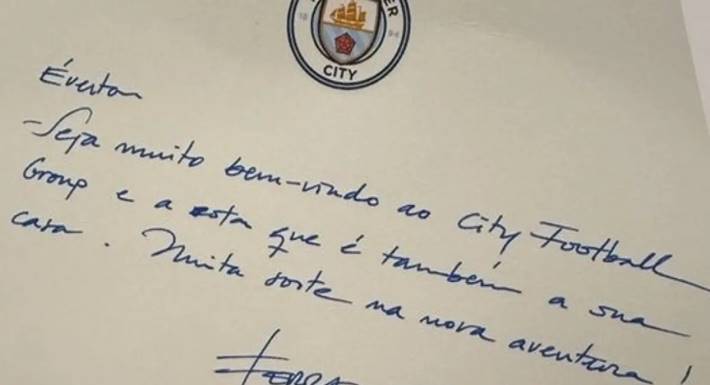 ER
18 94
CITY
Éverton
- Seja muito bem-vindo ao City Football
Group e a esta que é também a sua
casa. Muita sorte na nova aventura!